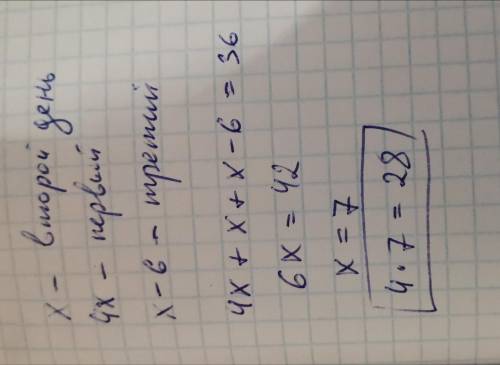 x – второй день
4x – первый
x-6 – третий
4x + x + x - 6 = 36
6x = 42
x = 7
4 · 7 = 28